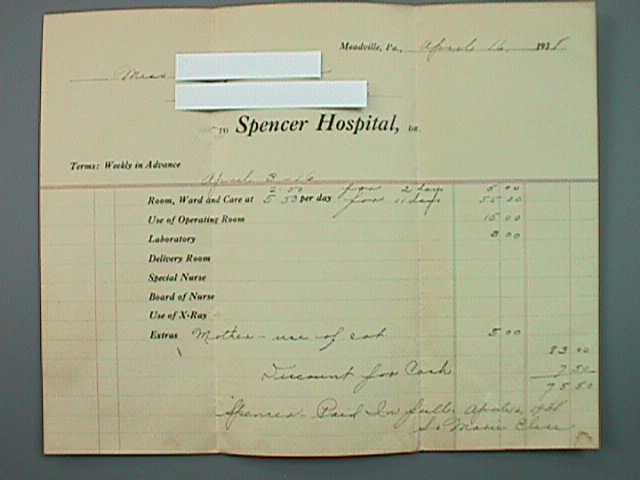 Meadville, Pa., April 16, 1938
Miss
TO Spencer Hospital, DR.
Terms: Weekly in Advance
April 3-16
2.50 for 2 days 5 00
Room, Ward and Care at 5.00 per day for 11 days 55 00
Use of Operating Room 15 00
Laboratory 3 00
Delivery Room
Special Nurse
Board of Nurse
Use of X-Ray
Extras Mother - use of cot 5 00
83 00
Discount for Cash 7 50
75 50
Spencer. Paid In full. April 16, 1938
Sr Marie Clare